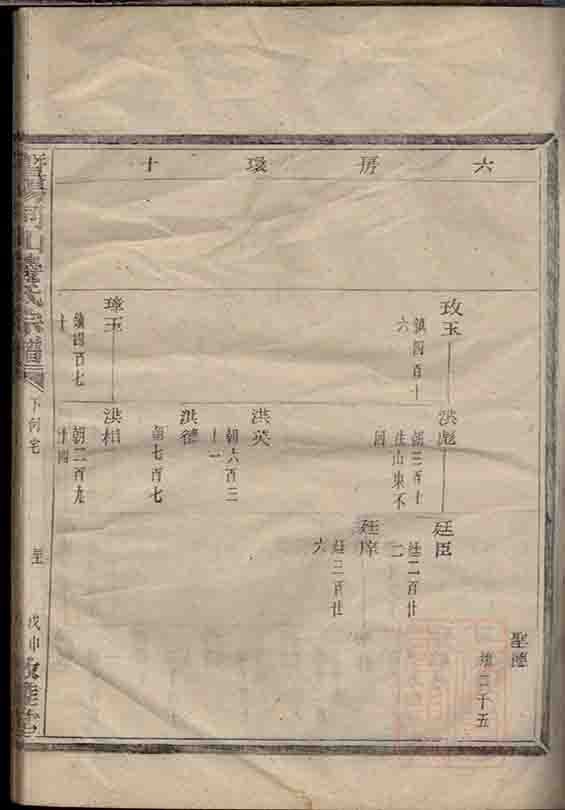 六房環十
聖德
二十五
玫玉
鎮四百十
六
洪彪
朝三百十
住山東不
回
廷臣
廷二百廿
二
廷席
廷三百廿
六
洪英
朝六百三
十一
洪德
朝七百七
璋玉
鎮四百七
十
洪相
朝二百九
十四
氏宗譜
下何宅
戊申